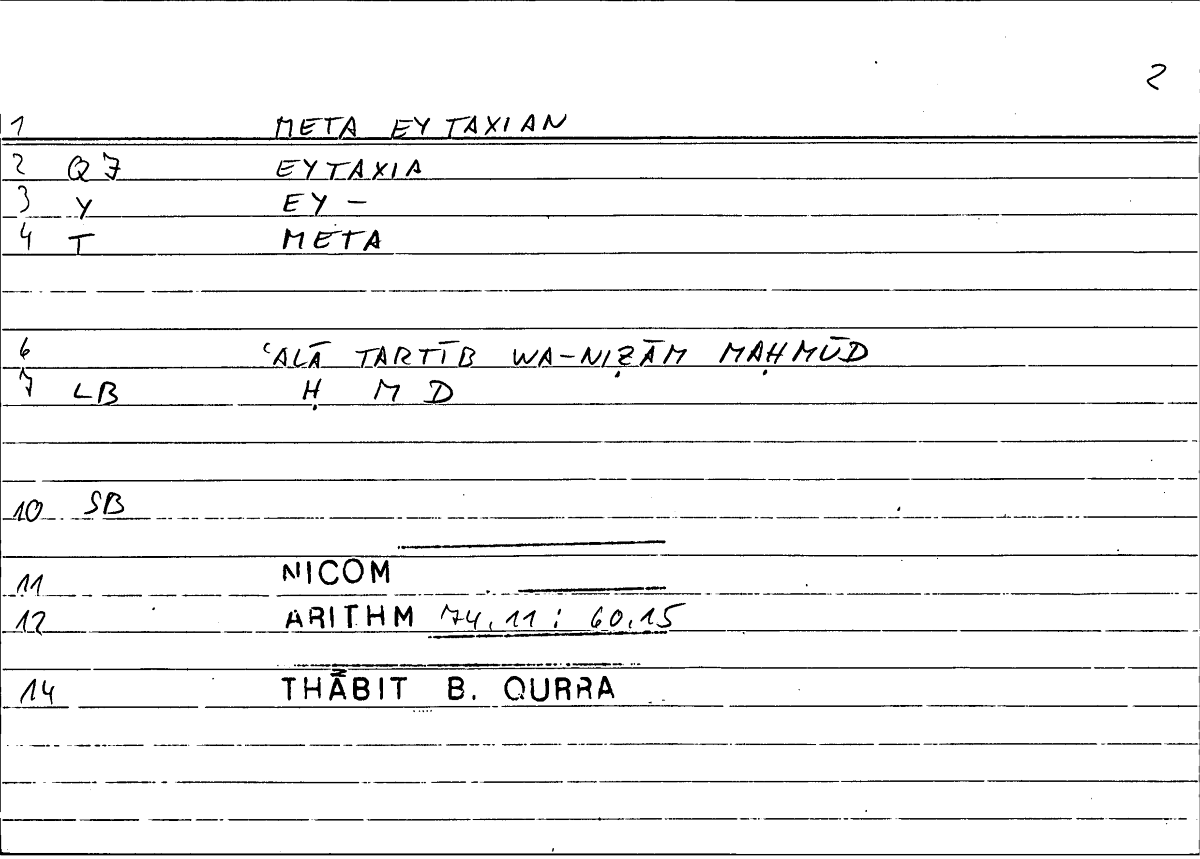 2
1 META EYTAXIAN
2 Q7 EYTAXIA
3 Y EY –
4 T META
6 ʿALĀ TARTĪB WA-NIẒĀM MAḤMŪD
7 LB Ḥ M D
10 SB
11 NICOM
12 ARITHM 74.11 : 60.15
14 THĀBIT B. QURRA